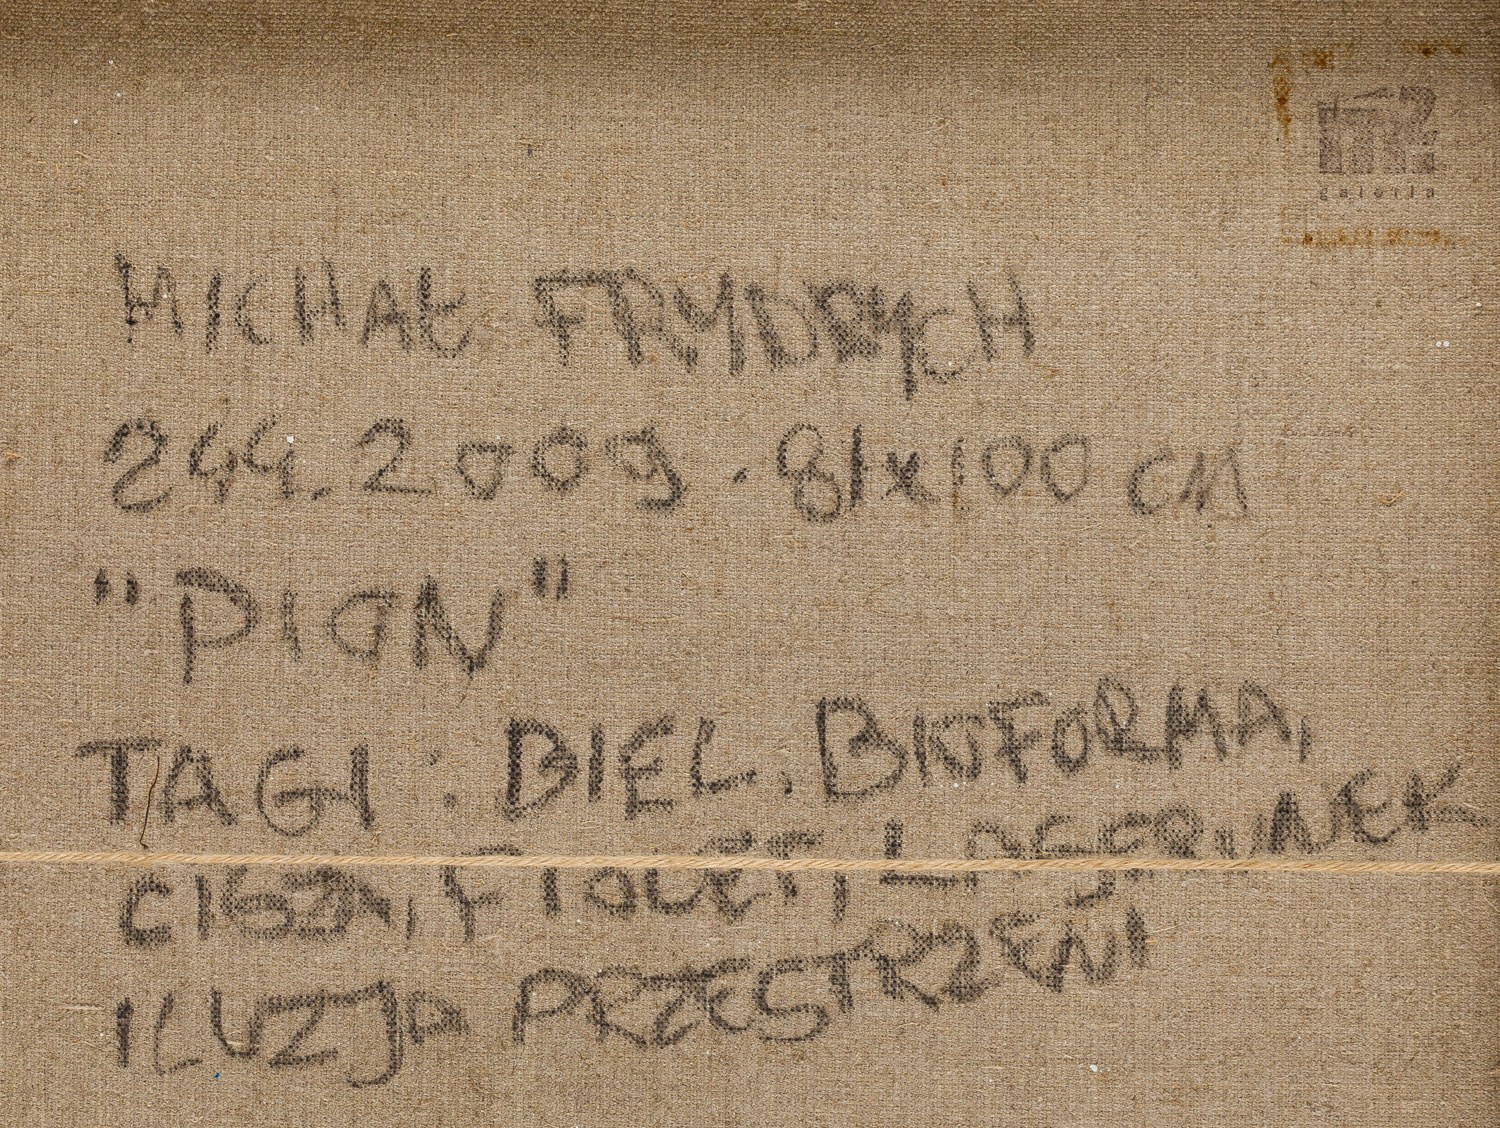 galeria
MICHAŁ FRYDRYCH
2009. 81x100 cm
"PION"
TAGI: BIEL, BIOFORMA,
CISZA, FIOLET, LABIRYNEK
ILUZJA PRZESTRZENI